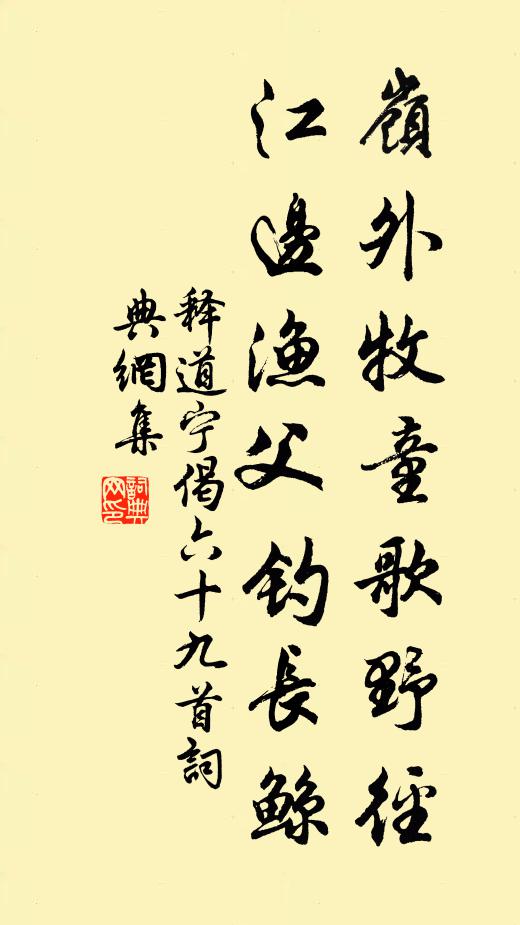 嶺外牧童歌野徑
江邊漁父釣長鯨
释道宁偈六十九首詞
典網集
詞典网印